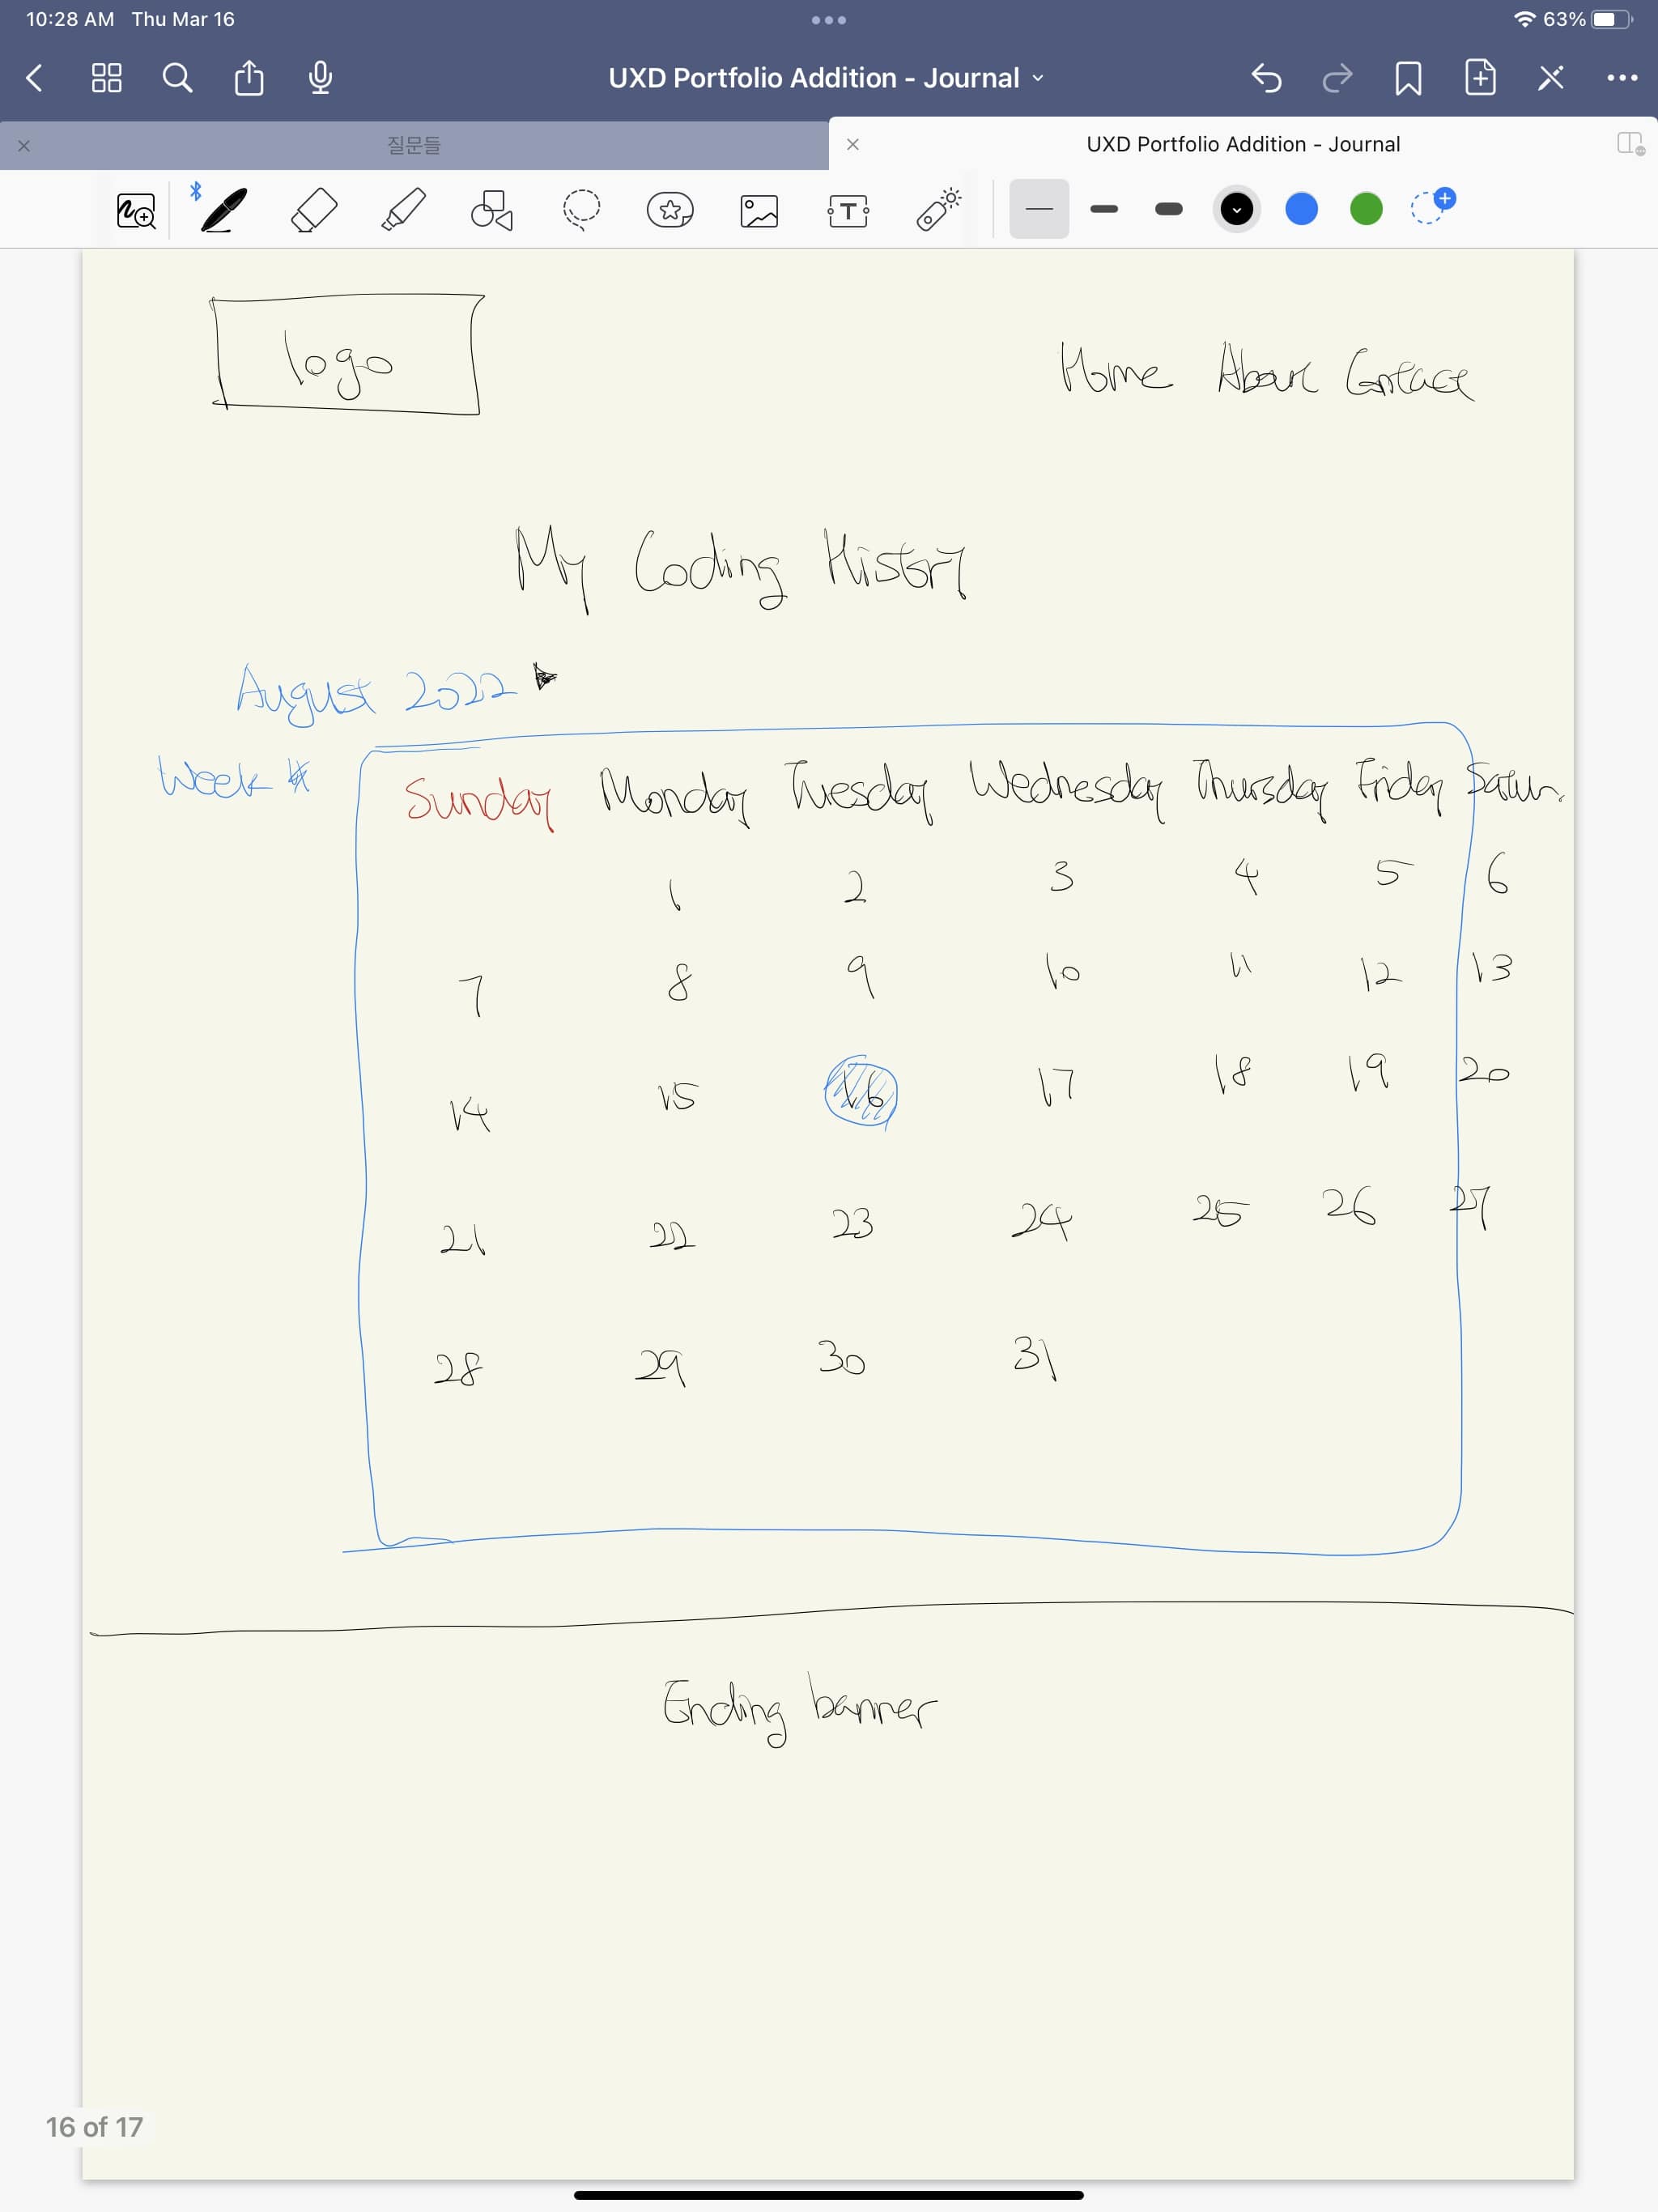 10:28 AM Thu Mar 16
63%
UXD Portfolio Addition - Journal
질문들
UXD Portfolio Addition - Journal
T
logo
Home About Contact
My Coding History
August 2022
Week #
Sunday Monday Tuesday Wednesday Thursday Friday Satur.
1 2 3 4 5 6
7 8 9 10 11 12 13
14 15 16 17 18 19 20
21 22 23 24 25 26 27
28 29 30 31
Ending banner
16 of 17